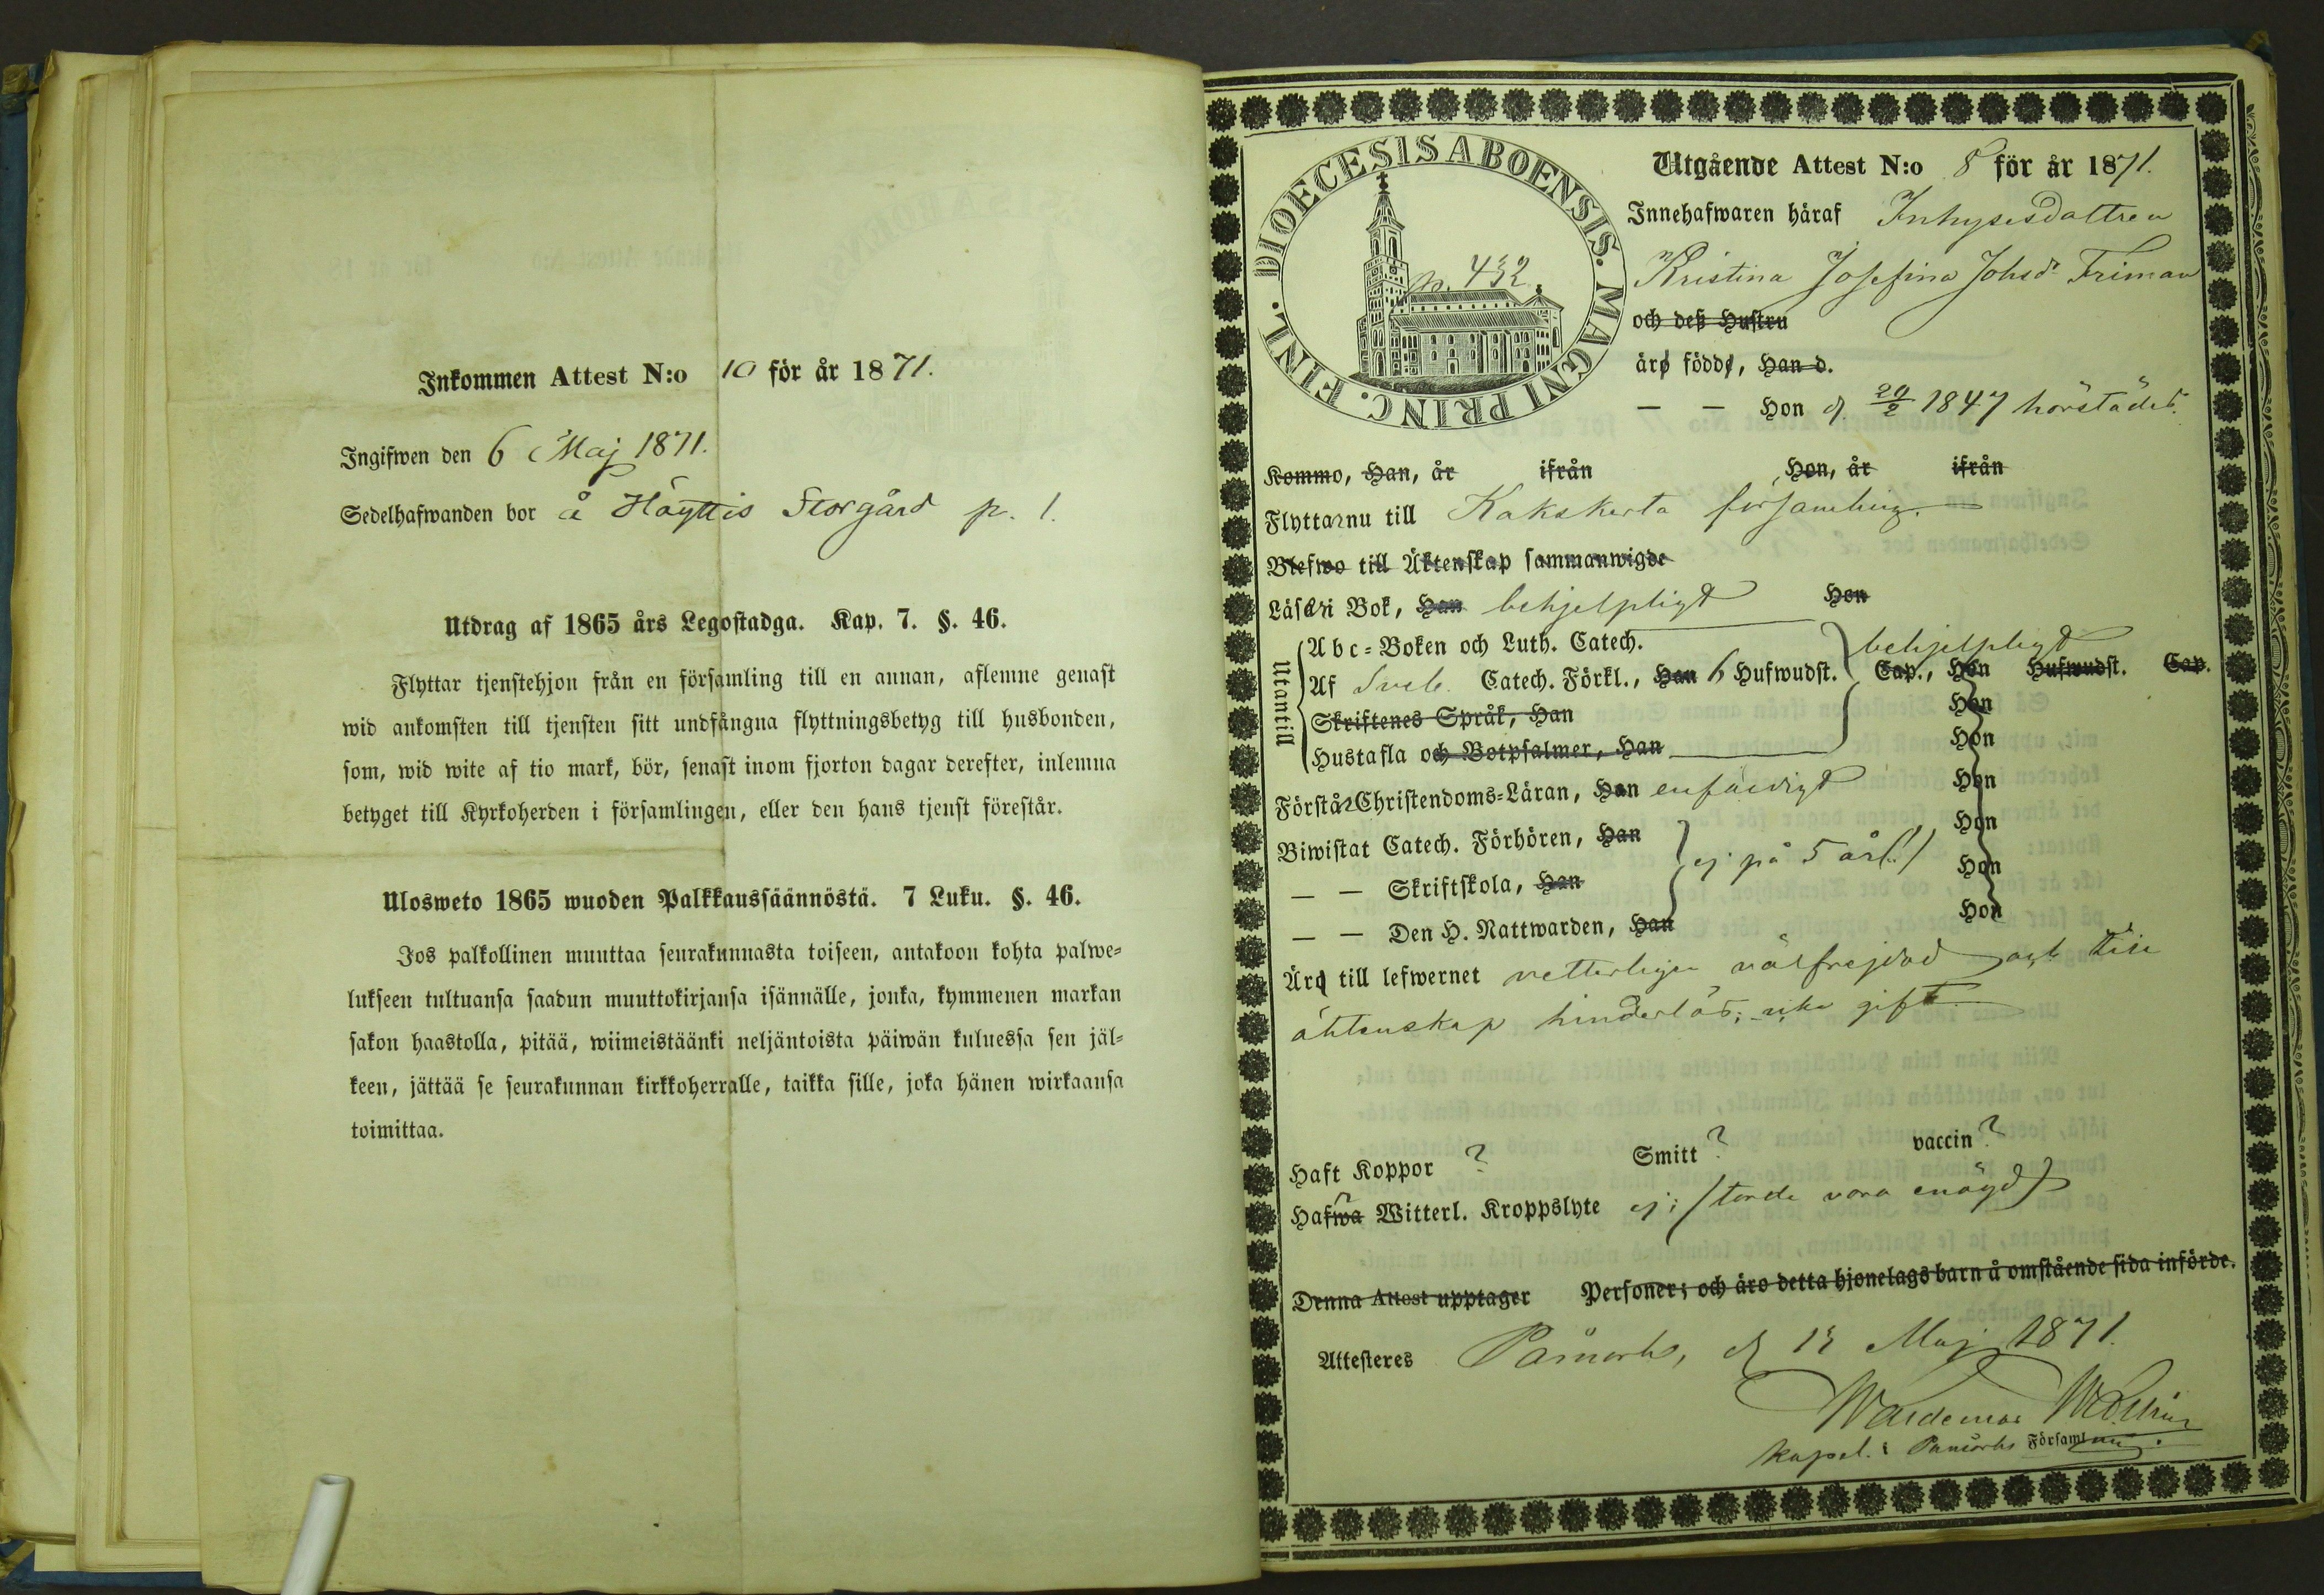 Inkommen Attest N:o 10 för år 1871.
Ingifwen den 6 Maj 1871.
Sedelhafwanden bor å Höyttis Storgård p. 1.
Utdrag af 1865 års Legostadga. Kap. 7. §. 46.
Flyttar tjenstehjon från en församling till en annan, aflemne genast
wid ankomsten till tjensten sitt undfångna flyttningsbetyg till husbonden,
som, wid wite af tio mark, bör, senast inom fjorton dagar derefter, inlemna
betyget till Kyrkoherden i församlingen, eller den hans tjenst förestår.
Ulosweto 1865 wuoden Palkkaussäännöstä. 7 Luku. §. 46.
Jos palkollinen muuttaa seurakunnasta toiseen, antakoon kohta palwe=
lukseen tultuansa saadun muuttokirjansa isännälle, jonka, kymmenen markan
sakon haastolla, pitää, wiimeistäänki neljäntoista päiwän kuluessa sen jäl=
keen, jättää se seurakunnan kirkkoherralle, taikka sille, joka hänen wirkaansa
toimittaa.
DIOECESIS ABOENSIS. MAGNI PRINC. FINL.
p. 432.
Utgående Attest N:o 8 för år 1871.
Innehafwaren håraf Inhysesdottren
Kristina Josefina Johsdr Friman
och deß Hustru
äro födde, Han d.
— — Hon d. 20/2 1847 härstädes.
Kommo, Han, år ifrån Hon, år ifrån
Flyttar nu till Kakskerta församling.
Blefwo till Äktenskap sammanwigde
Läser i Bok, Han behjelpligt Hon
Utantill
Abc=Boken och Luth. Catech. behjelpligt
Af Sveb. Catech. Förkl., Han 6 Hufwudst. Cap., Hon Hufwudst. Cap.
Skriftenes Språk, Han Hon
Hustafla och Botpsalmer, Han Hon
Förstår Christendoms=Läran, Han enfaldigt Hon
Biwistat Catech. Förhören, Han Hon
— — Skriftskola, Han ej på 5 år(!) Hon
— — Den H. Nattwarden, Han Hon
Äro till lefwernet vetterligen välfrejdad och till
äktenskap hinderlös; icke gift.
Haft Koppor ? Smitt ? vaccin ?
Hafwa Witterl. Kroppslyte ej; (torde vara enögd)
Denna Attest upptager Personer; och äro detta hjonelags barn å omstående sida införde.
Attesteres Påmark, d. 13 Maj 1871.
Waldemar
Kapel. i Påmarks Församling.